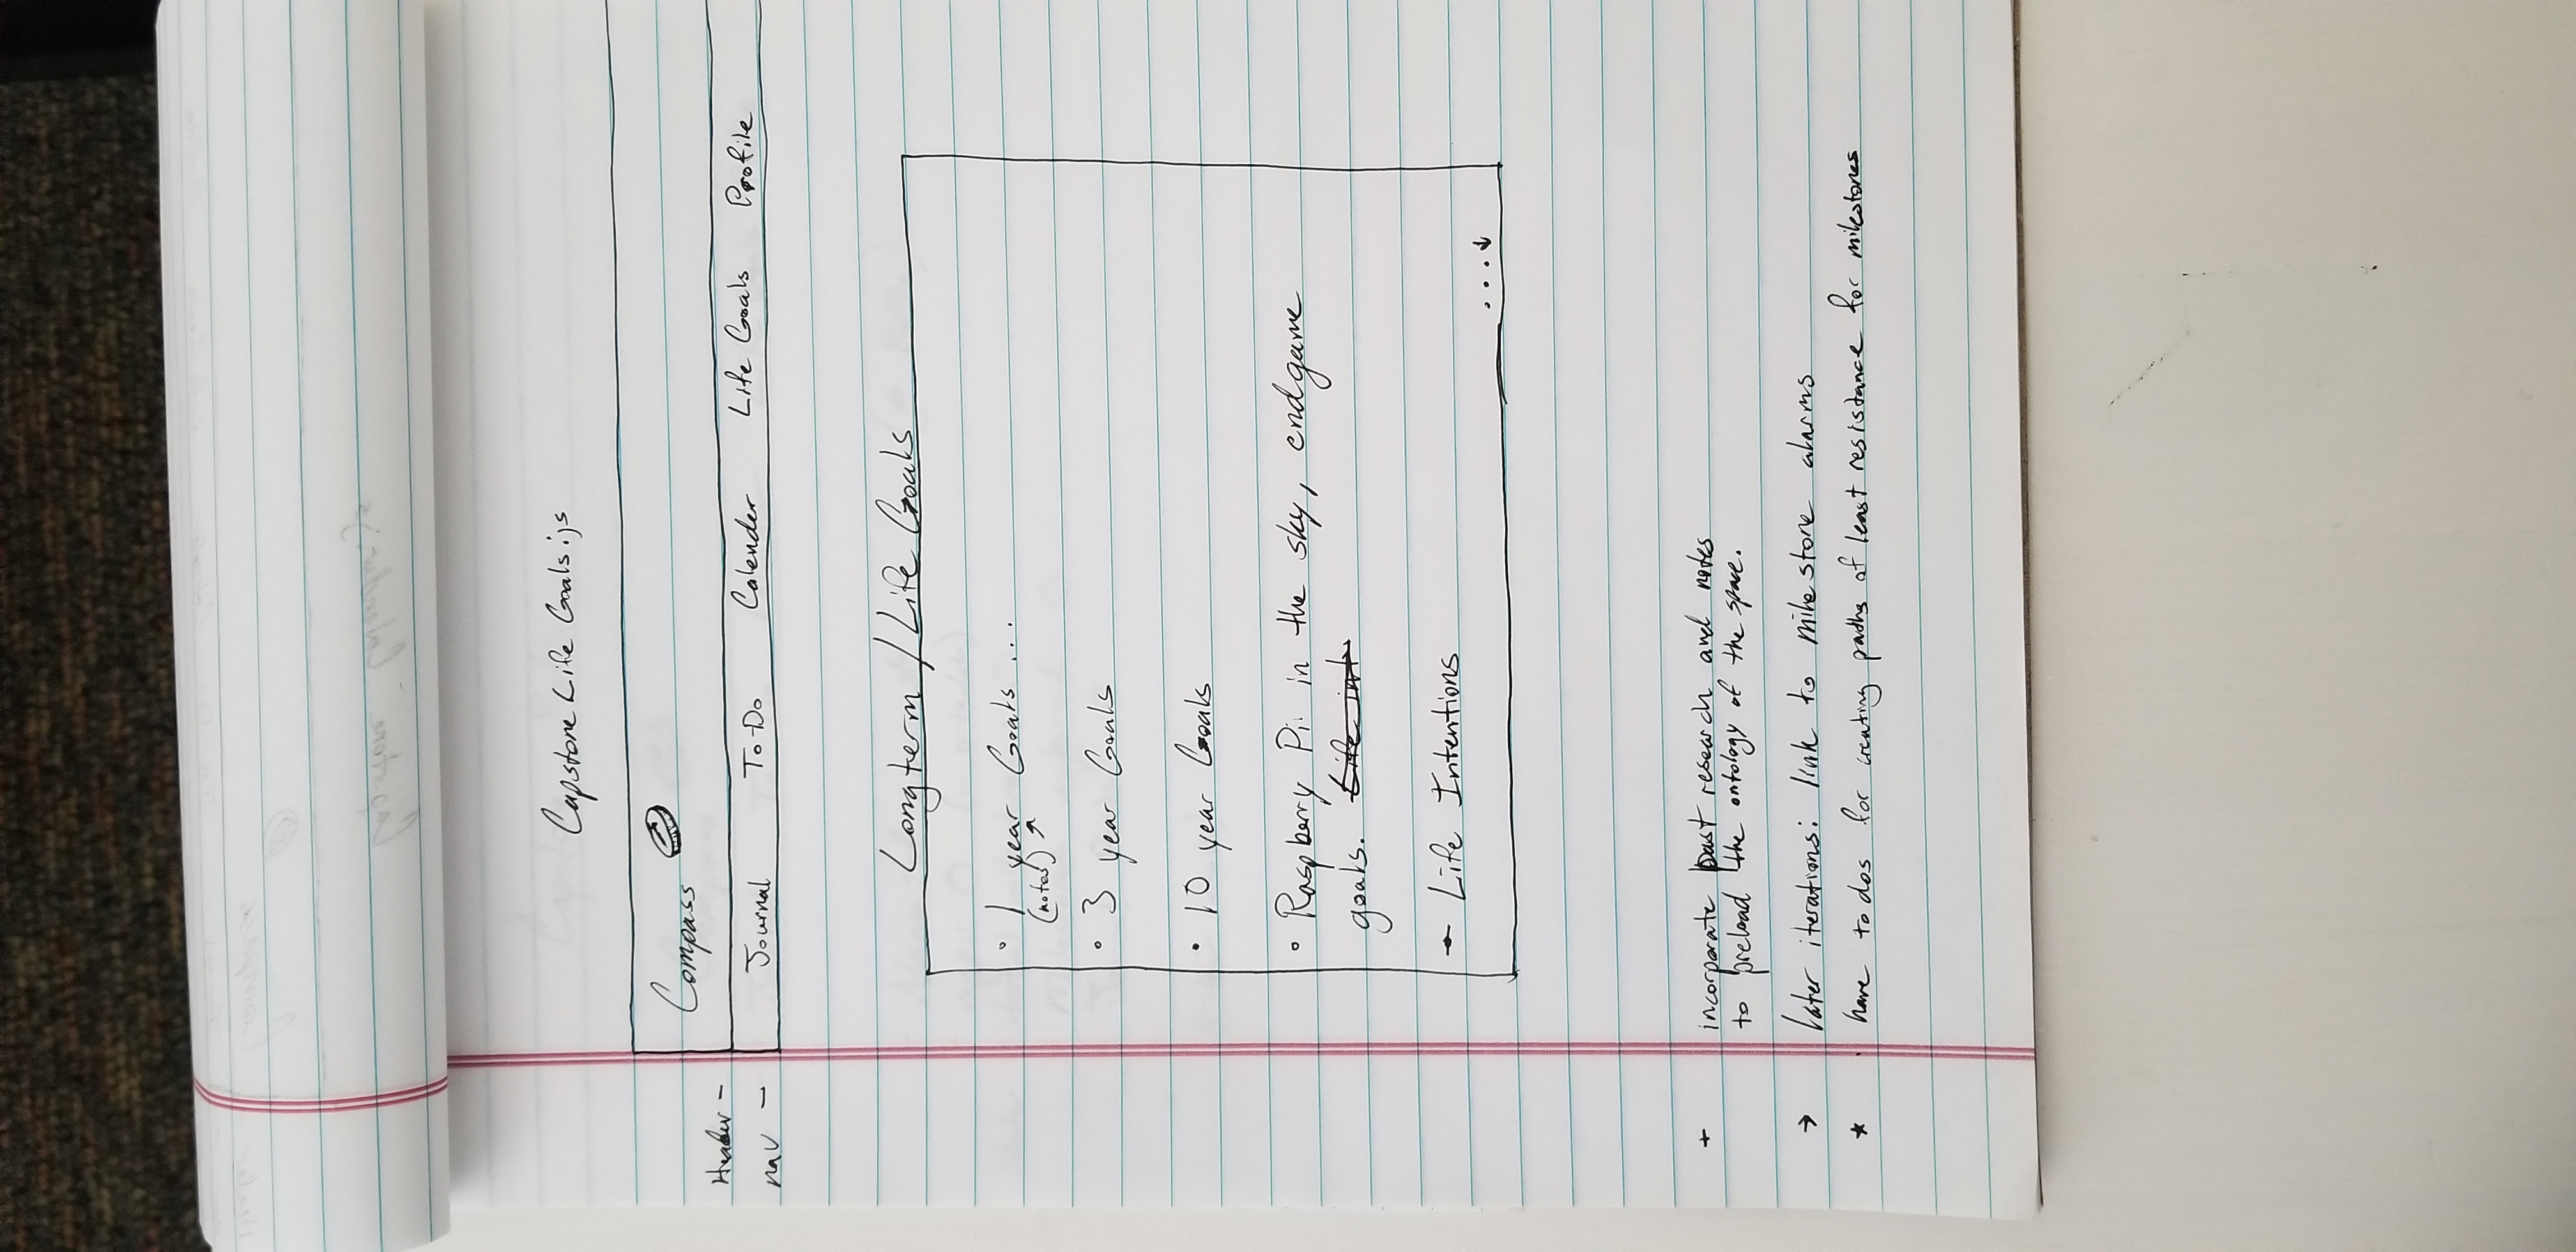 Capstone Life Goals.js
Compass
Header -
nav -
Journal To-Do Calender Life Goals Profile
Longterm / Life Goals
• 1 year Goals ...
(notes) ↗
• 3 year Goals
• 10 year Goals
• Raspberry Pi in the sky, endgame
goals. Life int
- Life Intentions
...↓
+ incorporate past research and notes
to preload the ontology of the space.
→ later iterations: link to milestone alarms
★ have to dos for creating paths of least resistance for milestones